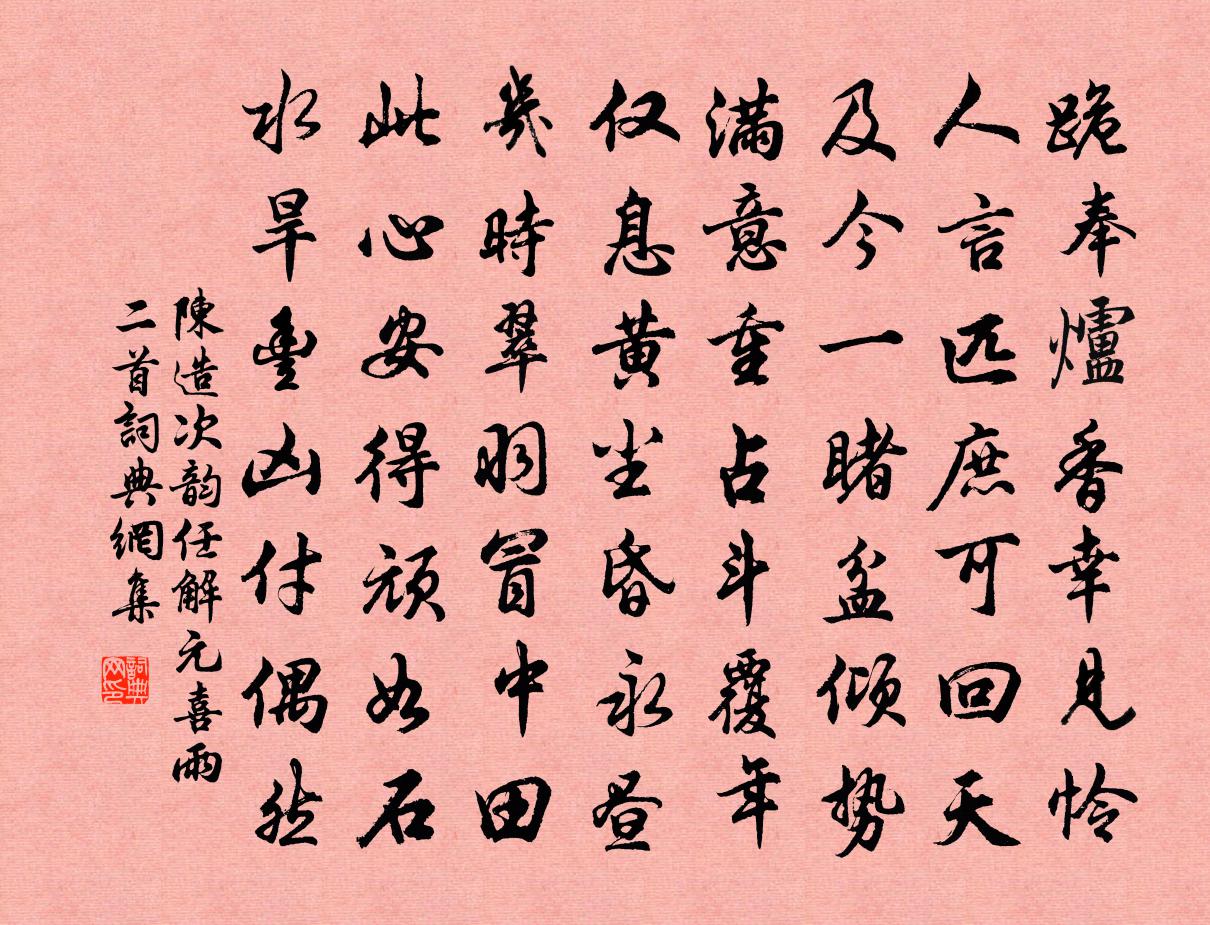 跪奉爐香幸見怜
人言匹庶可回天
及今一睹盆傾勢
滿意重占斗覆年
仅息黄尘昏永昼
幾時翠羽冒中田
此心安得頑如石
水旱豊凶付偶然
陳造次韵任解元喜雨
二首詞典網集
詞典
网印